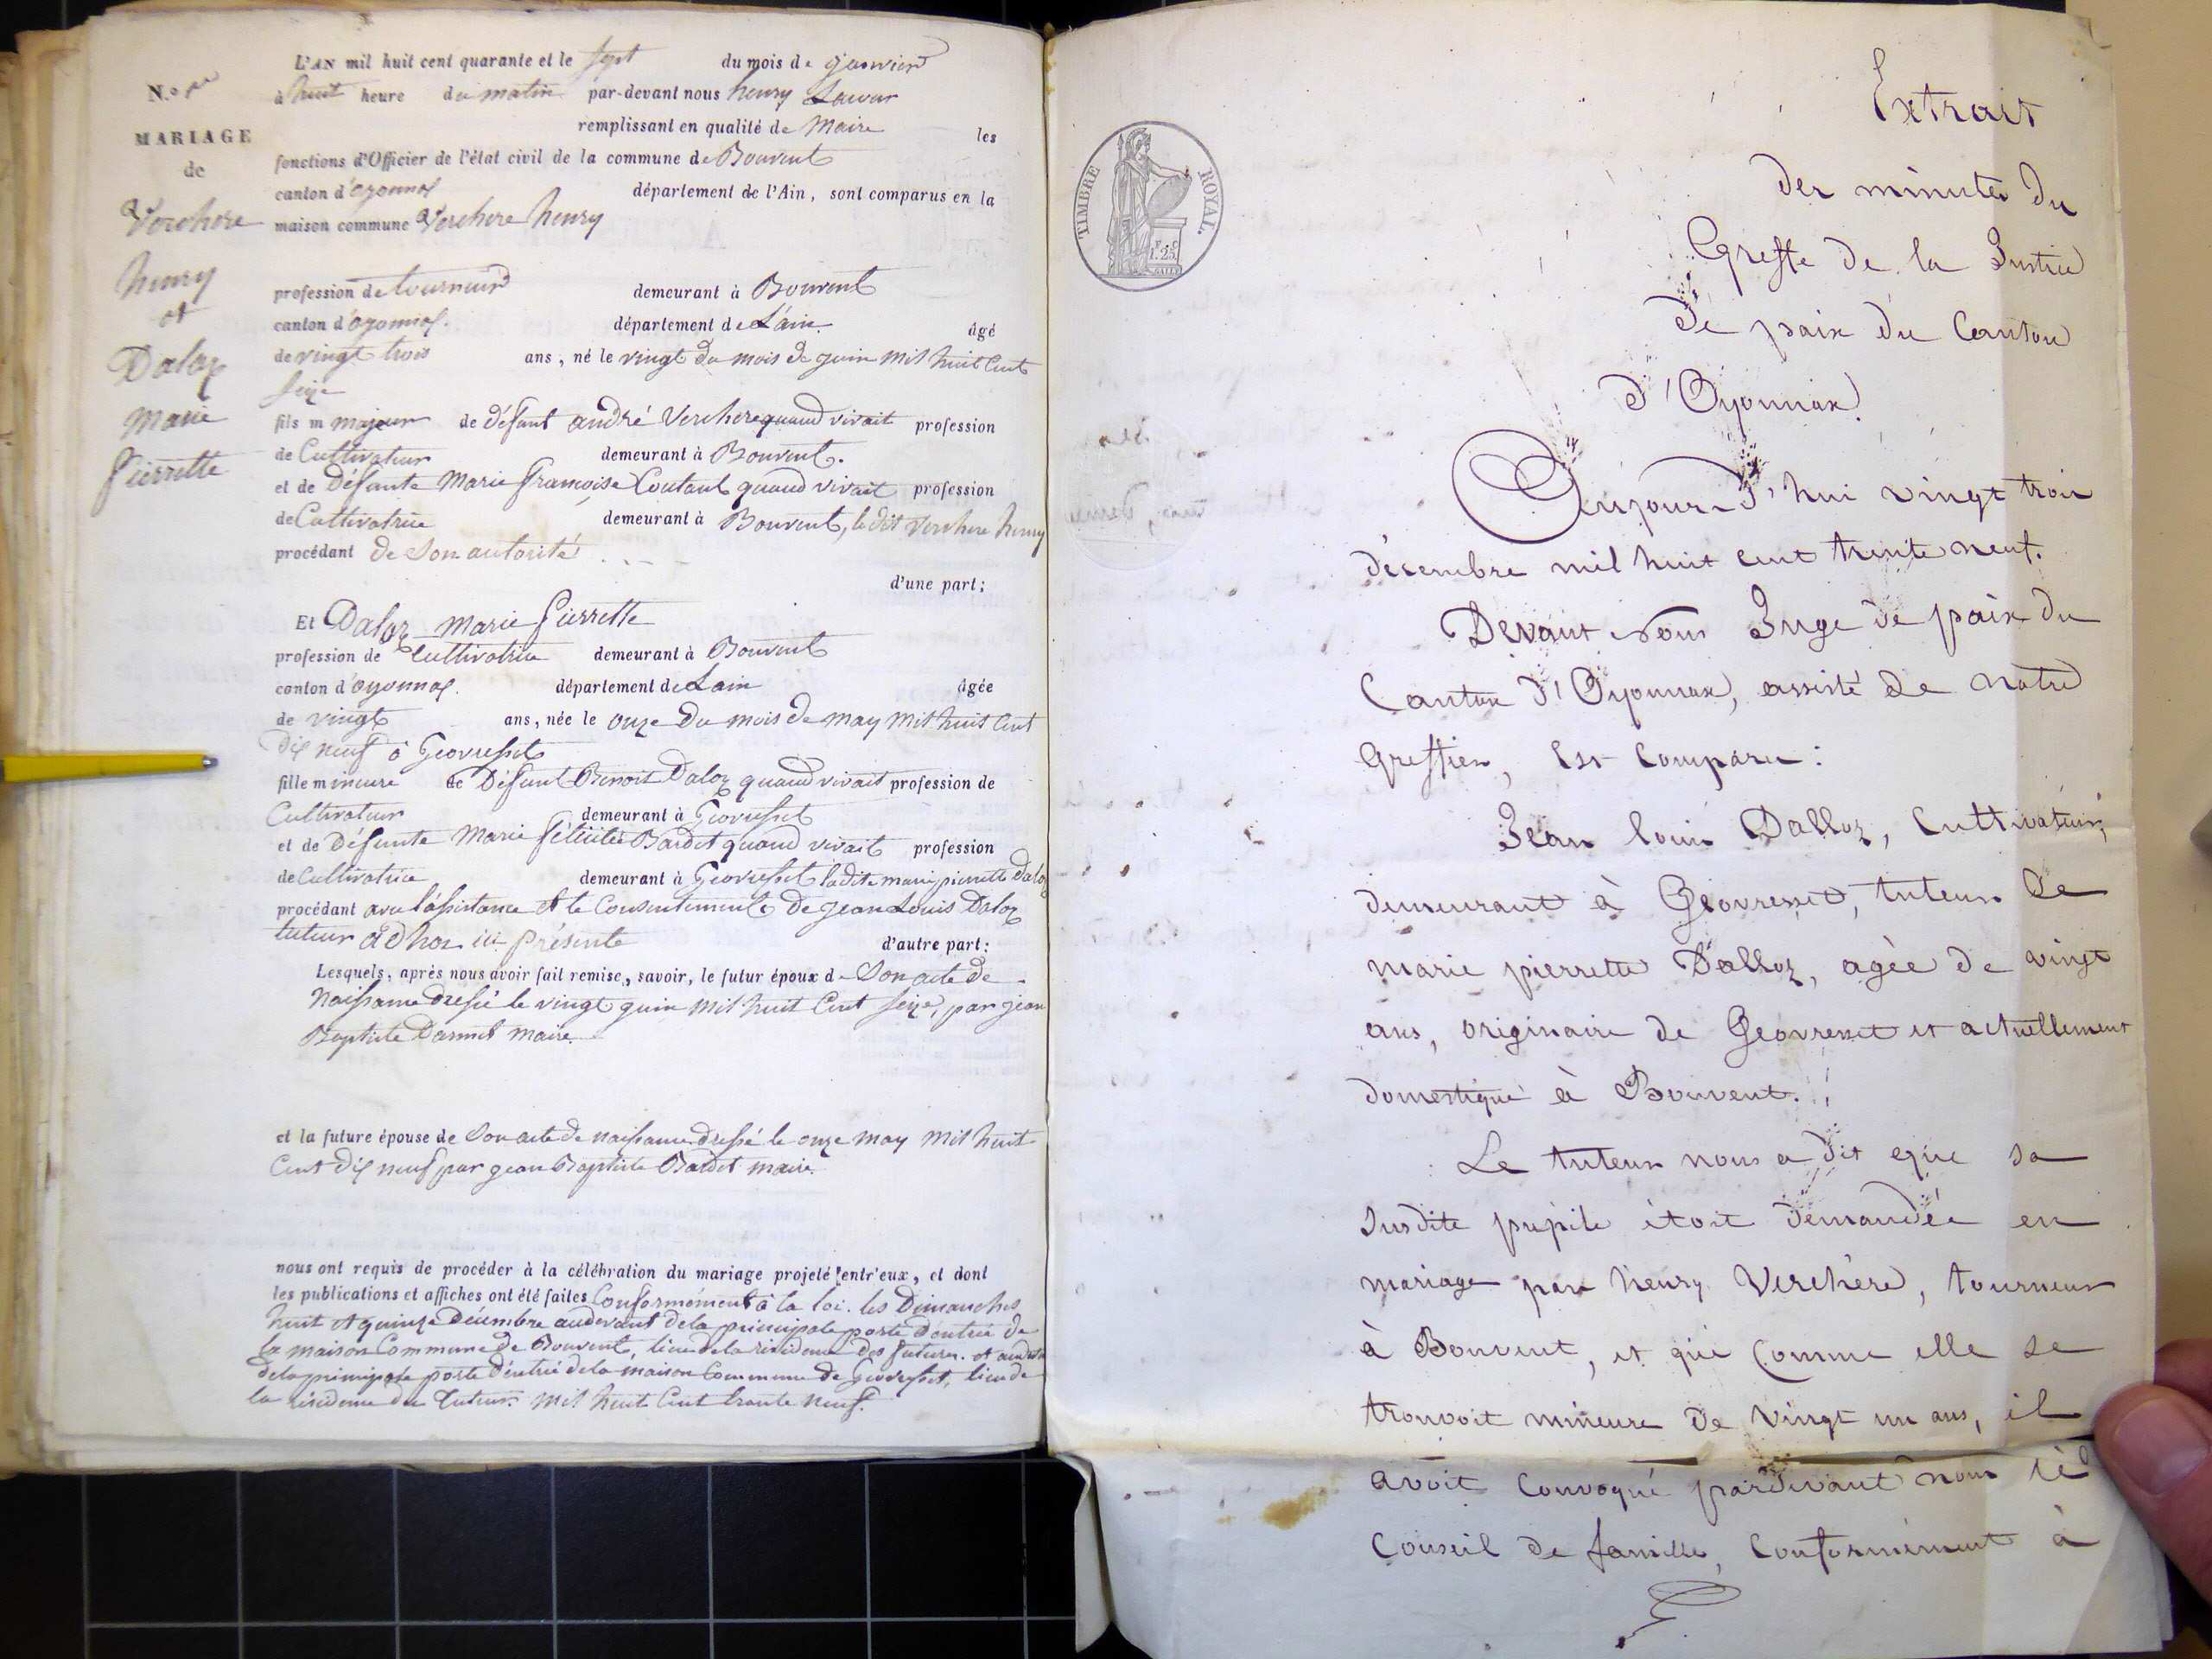 N.º 1er
MARIAGE
de
Verchere
henry
et
Daloz
Marie
Pierrette
L'AN mil huit cent quarante et le sept du mois de janvier
à huit heure du matin par-devant nous henry
remplissant en qualité de Maire les
fonctions d'Officier de l'état civil de la commune de Bouvent
canton d'oyonnax département de l'Ain, sont comparus en la
maison commune Verchere henry
profession de tourneur demeurant à Bouvent
canton d'oyonnax. département de L'ain âgé
de vingt trois ans, né le vingt du mois de juin mil huit Cent
seize
fils m majeur de défunt andré Verchere quand vivait profession
de Cultivateur demeurant à Bouvent.
et de défunte Marie françoise Coutant quand vivait profession
de Cultivatrice demeurant à Bouvent, le dit Verchere henry
procédant de Son autorité
d'une part;
Et Daloz Marie Pierrette
profession de Cultivatrice demeurant à Bouvent
canton d'oyonnax. département de Lain âgée
de vingt ans, née le onze du mois de may mil huit Cent
dix neuf à Geovresset
fille mineure de Défunt Benoit Daloz quand vivait profession de
Cultivateur demeurant à Geovresset
et de Défunte Marie félicitée Bardet quand vivait profession
de Cultivatrice demeurant à Geovresset ladite marie pierrette Daloz
procédant avec l'assistance et le Consentement de jean Louis Daloz
tuteur ad hoc ici présente d'autre part:
Lesquels, après nous avoir fait remise, savoir, le futur époux de Son acte de
Naissance dressé le vingt juin mil huit Cent seize, par jean
Baptiste Darmet maire
et la future épouse de Son acte de naissance dressé le onze may mil huit
Cent dix neuf par jean Baptiste Bardet maire.
nous ont requis de procéder à la célébration du mariage projeté entr'eux, et dont
les publications et affiches ont été faites Conformément à la loi. les Dimanches
huit et quinze Décembre audevant de la principale porte d'entrée de
la maison Commune de Bouvent, lieu de la résidence des futurs. et audevant
de la principale porte d'entrée de la maison Commune de Geovresset, lieu de
la résidence du Tuteur. mil huit Cent trente neuf.
TIMBRE ROYAL.
F. C
1.25
Extrait
des minutes du
Greffe de la Justice
de paix du Canton
d'Oyonnax.
Aujourd'hui vingt trois
décembre mil huit cent trente neuf.
Devant Nous Juge de paix du
Canton d'Oyonnax, assisté de notre
greffier, Est Comparu:
Jean louis Dalloz, Cultivateur,
demeurant à Géovresset, tuteur de
marie pierrette Dalloz, agée de vingt
ans, originaire de Geovresset et actuellement
domestique à Bouvent.
Le tuteur nous a dit que sa
susdite pupile étoit demandée en
mariage par henry Verchère, tourneur
à Bouvent, et que Comme elle se
trouvoit mineure de vingt un ans, il
avoit Convoqué pardevant nous le
Conseil de famille, Conformément à